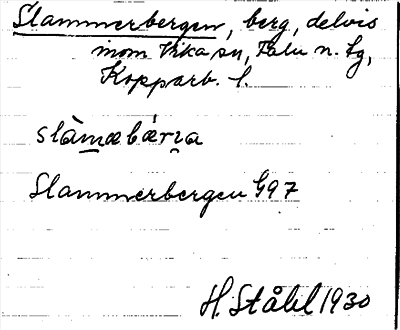 Slammerbergen, berg, delvis
inom Vika sn, Falu n. tg,
Kopparb. l.
slàmæbǽrɪa
Slammerbergen G97
H Ståhl 1930